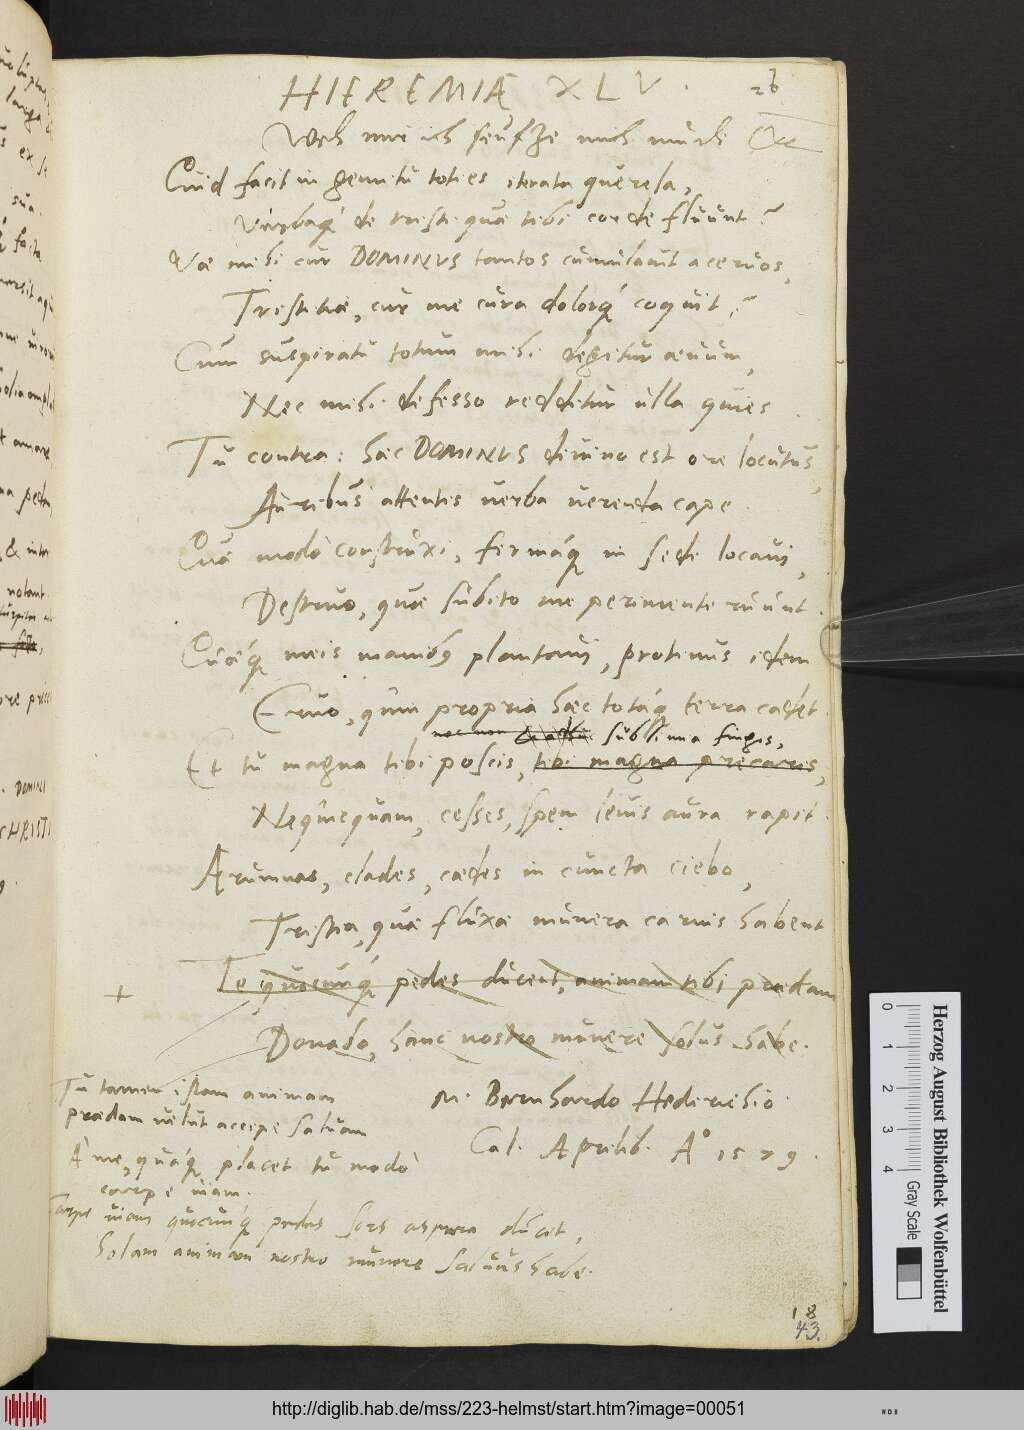 HIEREMIÆ XLV.
26
Weh mir ich seufze mich müde &c
Quid facit in gemitu toties iterata querela,
Verbaq́ de tristi quæ tibi corde fluunt?
Væ mihi cur DOMINUS tantos cumulavit acervos,
Tristitiæ, cur me cura dolorq́ coquit?
Cum suspiratu totum mihi degitur ævum,
Nec mihi defesso redditur ulla quies.
Tu contra: hæc DOMINUS divino est ore locutus,
Auribus attentis verba verenda cape.
Quæ modò construxi, firmáq́ in sede locavi,
Destruo, quæ subito me perimente ruunt.
Quæq́ meis manibus plantavi, protinus idem
Eruo, quum propria hæc totáq́ terra cadet.
nec non sublimia fingis,
Et tu magna tibi poscis, tibi magna precaris,
Nequicquam, cesses, spem levis aura rapit.
Ærumnas, clades, cædes in cuncta ciebo,
Tristia, quæ fluxæ munera carnis habent
+ Te quocunq́ pedes ducent, animam tibi prædam
Donabo, hanc nostro munere solus habe.
Tu tamen istam animam
prædam velut accipe salvam
À me, quáq́ placet tu modò
corripe viam.
Carpe viam quocunq́ pedes sors aspera ducet,
Solam animam nostro munere salvus habe.
M. Bernhardo Hederichio
Cal. Aprilib. A° 1579.
18
43.
0 1 2 3 4
Herzog August Bibliothek Wolfenbüttel
Gray Scale
http://diglib.hab.de/mss/223-helmst/start.htm?image=00051